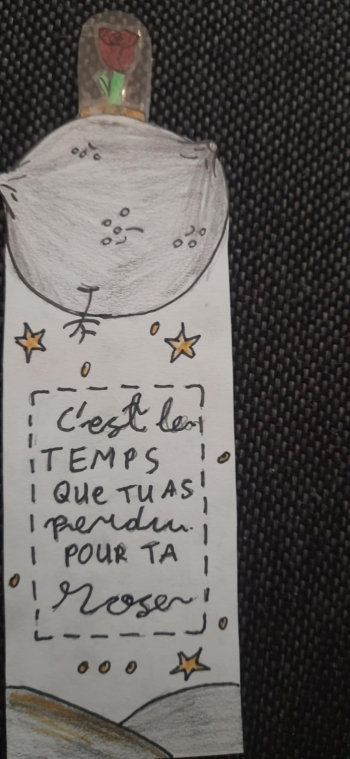 C'est le
TEMPS
QUE TU AS
perdu
POUR TA
Rose